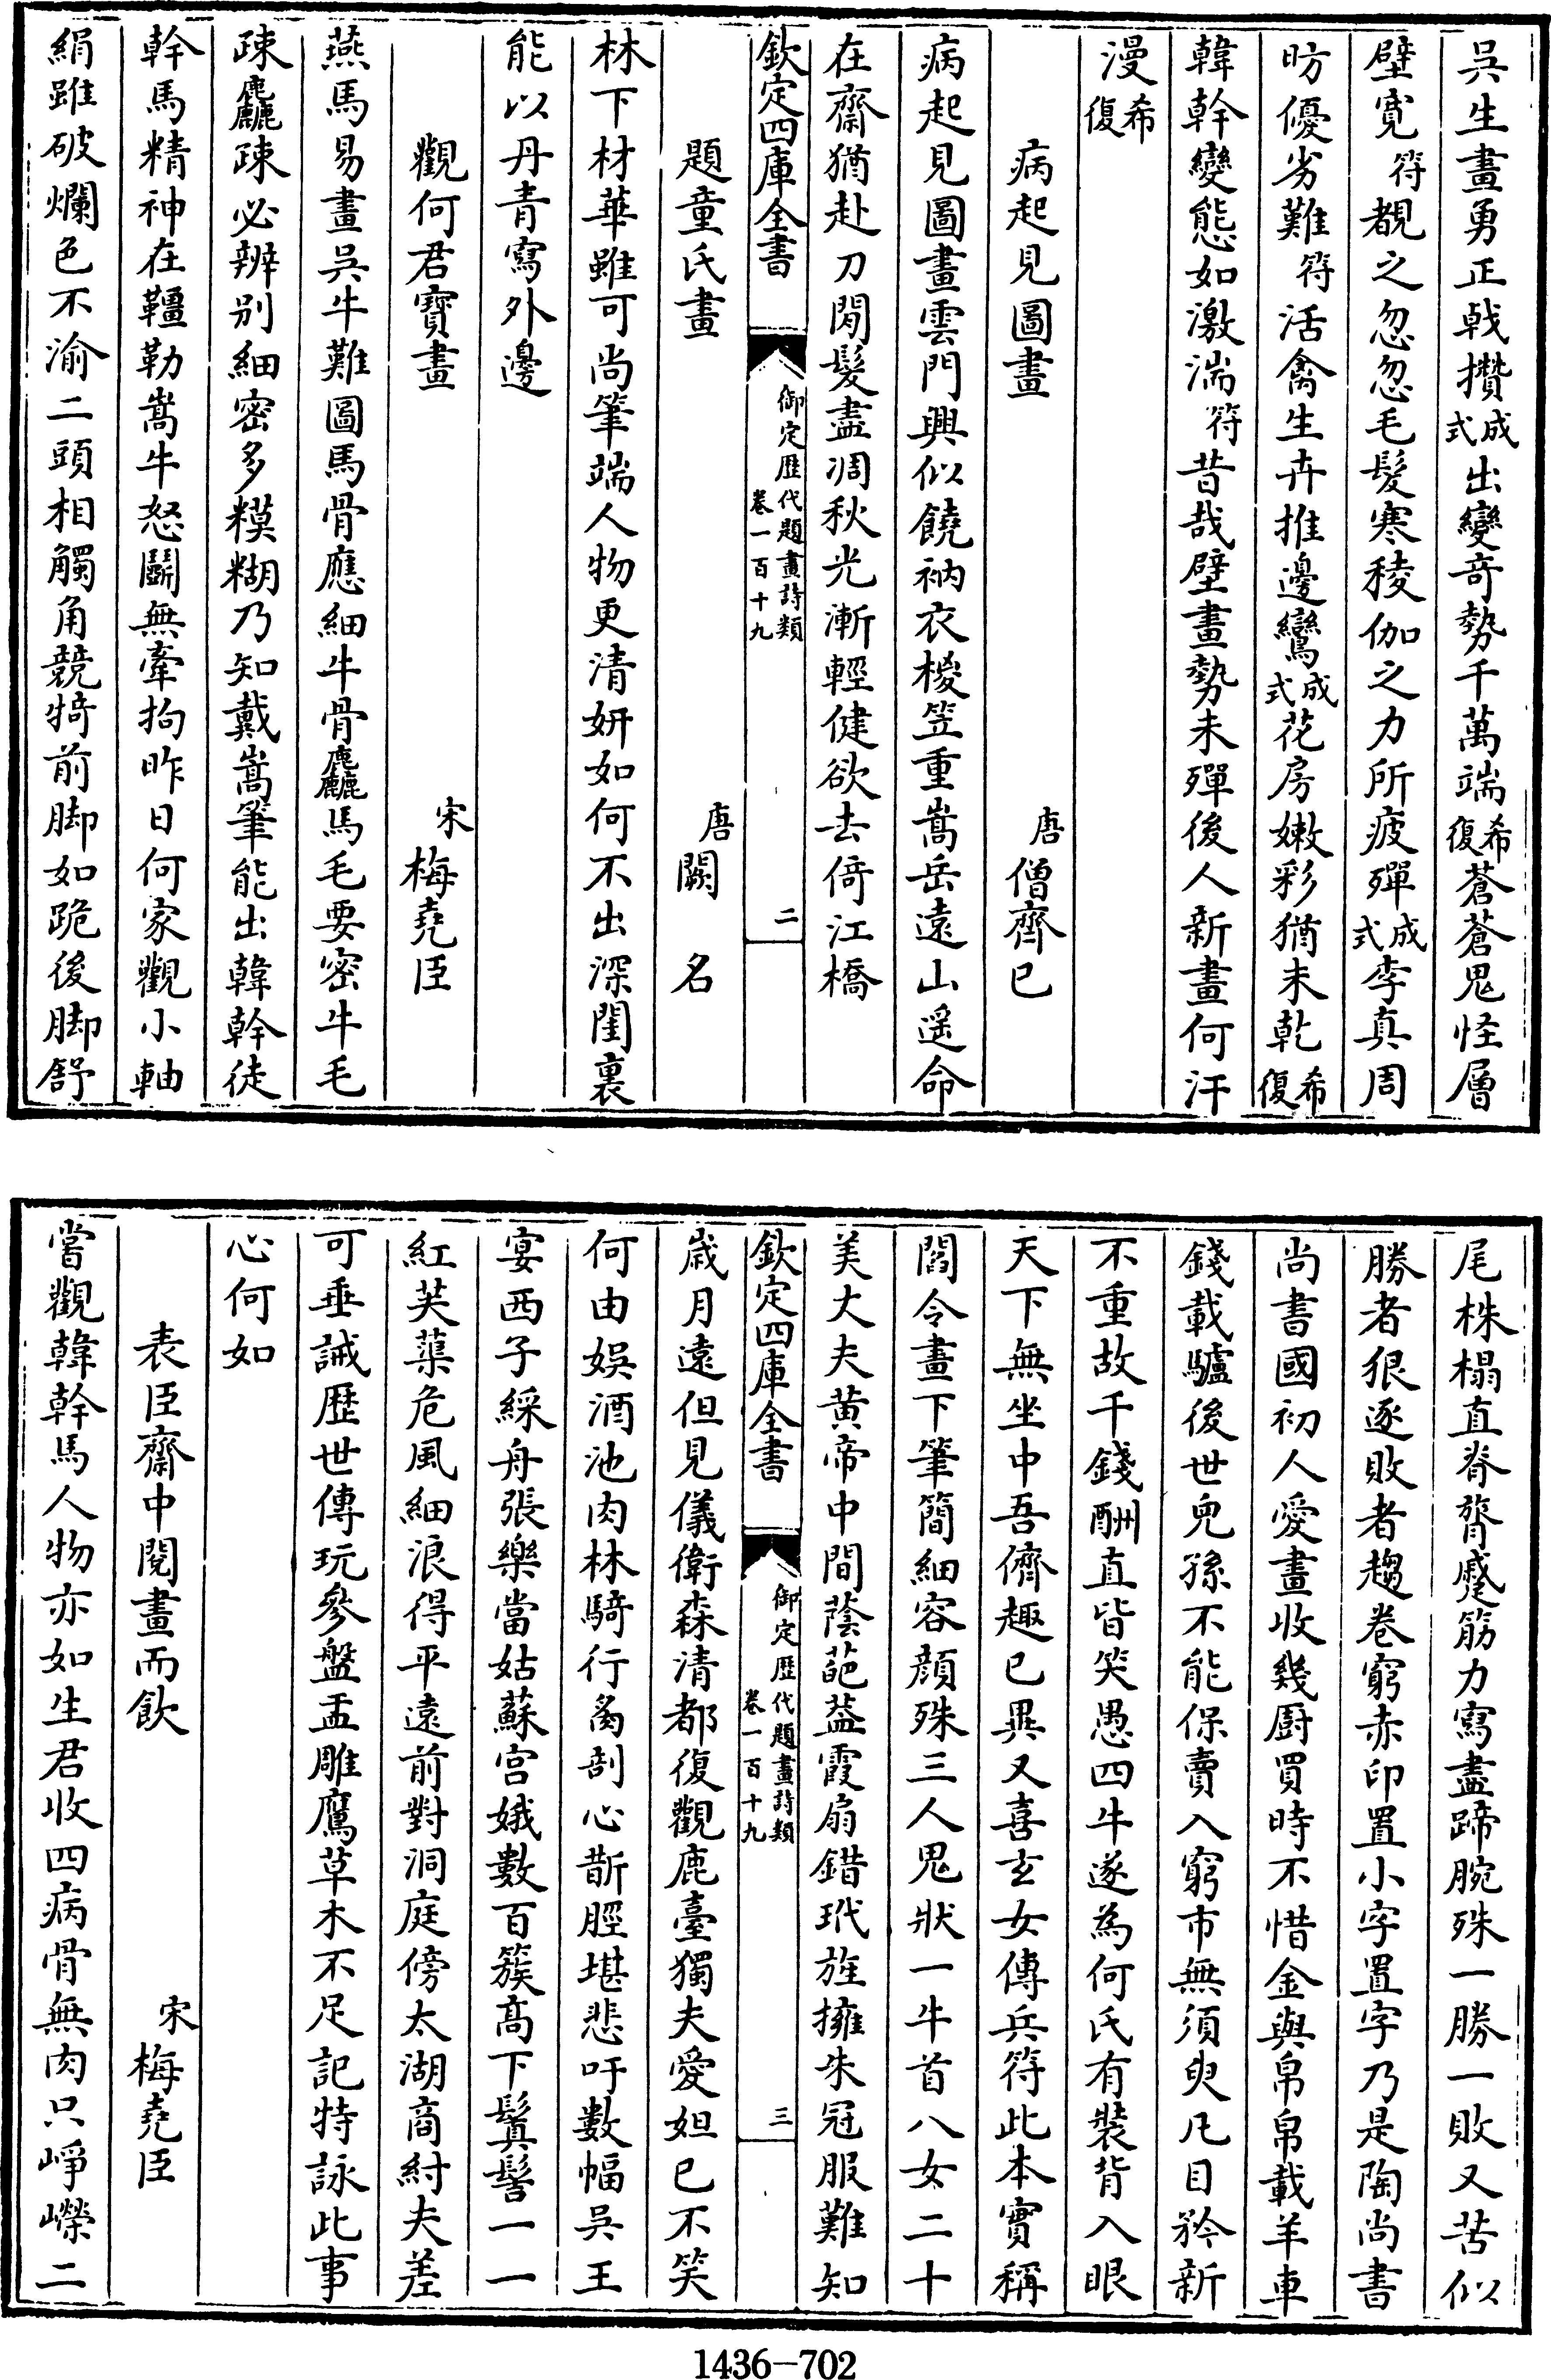 吳生畫勇正戟攢成式出變奇勢千萬端希復蒼蒼鬼怪層
壁寛符覩之忽忽毛髮寒稜伽之力所疲殫成式李真周
昉優劣難符活禽生卉推邊鸞成式花房嫩彩猶未乾希復
韓幹變態如激湍符昔哉壁畫勢未殫後人新畫何汗
漫希復
病起見圖畫 唐僧齊已
病起見圖畫雲門興似饒衲衣椶笠重嵩岳遠山遥命
在齋猶赴刀閒髮盡凋秋光漸輕健欲去倚江橋
欽定四庫全書 御定歷代題畫詩類 卷一百十九 二
題童氏畫 唐闕名
林下材華雖可尚筆端人物更清妍如何不出深閨裏
能以丹青寫外邊
觀何君寶畫 宋梅堯臣
燕馬易畫吳牛難圖馬骨應細牛骨麤馬毛要密牛毛
疎麤疎必辨别細密多糢糊乃知戴嵩筆能出韓幹徒
幹馬精神在韁勒嵩牛怒鬭無牽拘昨日何家觀小軸
絹雖破爛色不渝二頭相觸角競犄前脚如跪後脚舒
尾株榻直脊膂蹙筋力寫盡蹄腕殊一勝一敗又苦似
勝者狠逐敗者趨卷窮赤印置小字置字乃是陶尚書
尚書國初人愛畫收幾厨買時不惜金與帛帛載羊車
錢載驢後世兒孫不能保賣入窮市無須臾凡目矜新
不重故千錢酬直皆笑愚四牛遂為何氏有裝背入眼
天下無坐中吾儕趣已異又喜玄女傳兵符此本實稱
閻令畫下筆簡細容顔殊三人鬼狀一牛首八女二十
美丈夫黄帝中間蔭葩葢霞扇錯玳旌擁朱冠服難知
欽定四庫全書 御定歷代題畫詩類 卷一百十九 三
歳月遠但見儀衛森清都復觀鹿臺獨夫愛妲已不笑
何由娛酒池肉林騎行炙剖心斮脛堪悲吁數幅吳王
宴西子綵舟張樂當姑蘇宫娥數百簇髙下鬒髻一一
紅芙蕖危風細浪得平遠前對洞庭傍太湖商紂夫差
可垂誡歷世傳玩參盤盂雕鷹草木不足記特詠此事
心何如
表臣齋中閱畫而飲 宋梅堯臣
嘗觀韓幹馬人物亦如生君收四病骨無肉只崢嶸二
1436-702